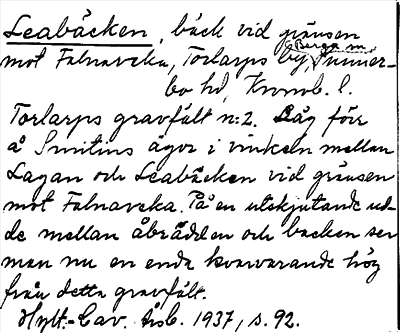 Leabäcken, bäck vid gränsen
mot Falnaveka, Torlarps by, Berga sn Sunner-
bo hd, Kronob. l.
Torlarps gravfält n:2. Låg förr
å Smitins ägor i vinkeln mellan
Lagan och Leabäcken vid gränsen
mot Falnaveka. På en utskjutande ud-
de mellan åbrädden och backen ser
man nu en enda kvarvarande hög
från detta gravfält.
Hylt.-Cav. Årsb. 1937, s. 92.